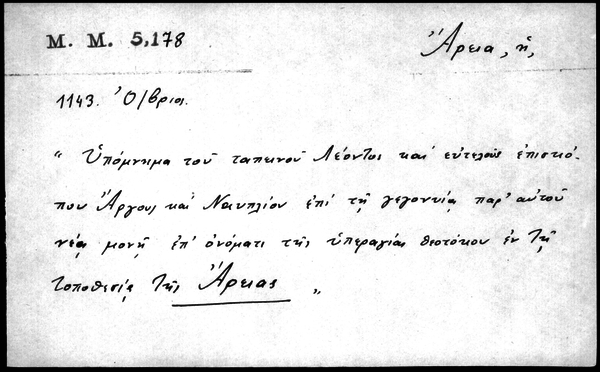 M. M. 5,178
Ἄρεια, ἡ,
1143. Ὀ/βριος.
„ Ὑπόμνημα τοῦ ταπεινοῦ Λέοντος καὶ εὐτελοῦς ἐπισκό-
που Ἄργους καὶ Ναυπλίου ἐπὶ τῇ γεγονυίᾳ παρ' αὐτοῦ
νέᾳ μονῇ ἐπ' ὀνόματι τῆς ὑπεραγίας θεοτόκου ἐν τῇ
τοποθεσίᾳ τῆς Ἄρειας „